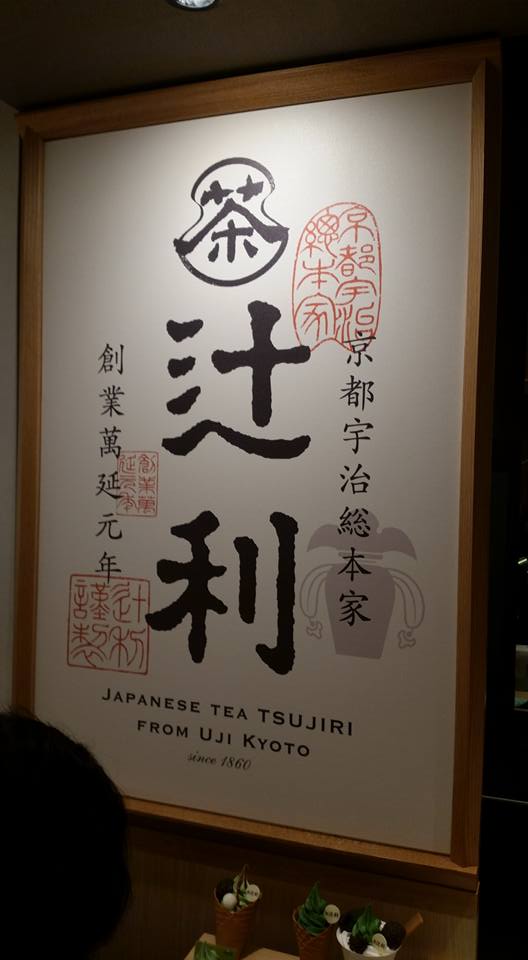 茶
辻利
京都宇治総本家
京都宇治
總本家
創業萬延元年
創業萬
延元年
辻利
謹製
JAPANESE TEA TSUJIRI
FROM UJI KYOTO
since 1860